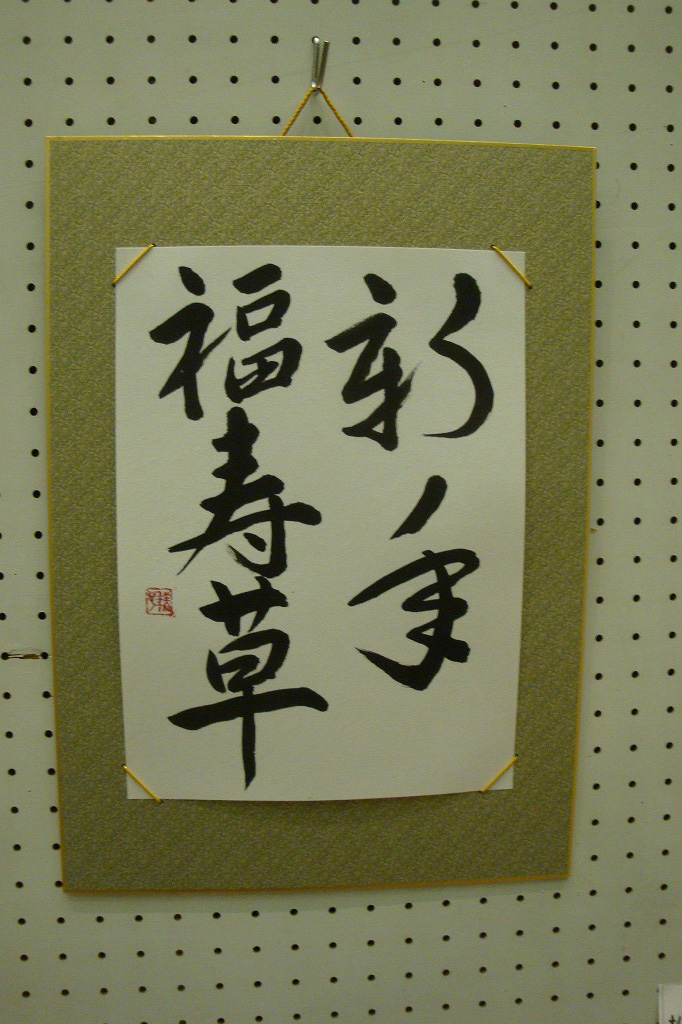 新年
福寿草